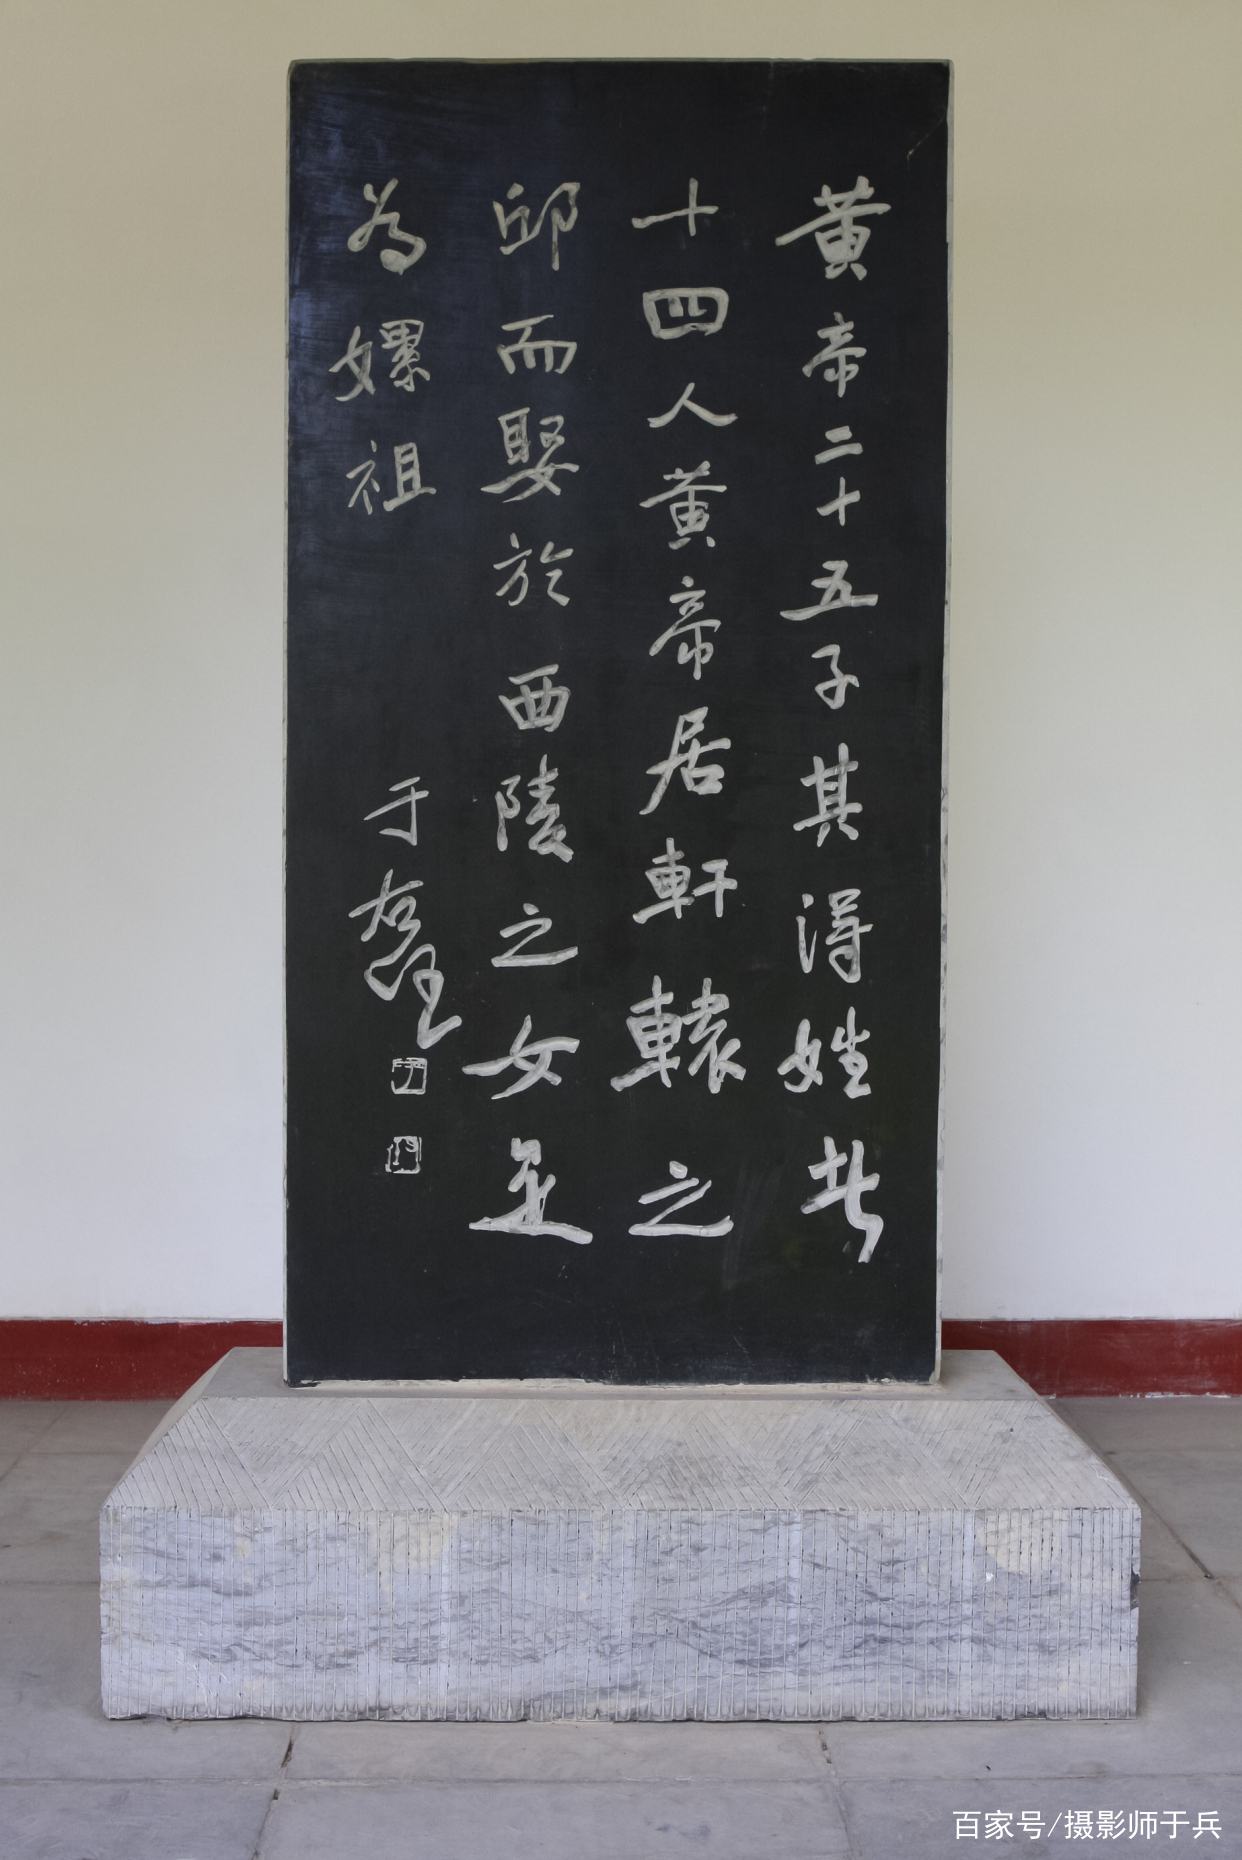 黃帝二十五子其得姓者
十四人黃帝居軒轅之
邱而娶於西陵之女是
為嫘祖
于右任
百家号/摄影师于兵